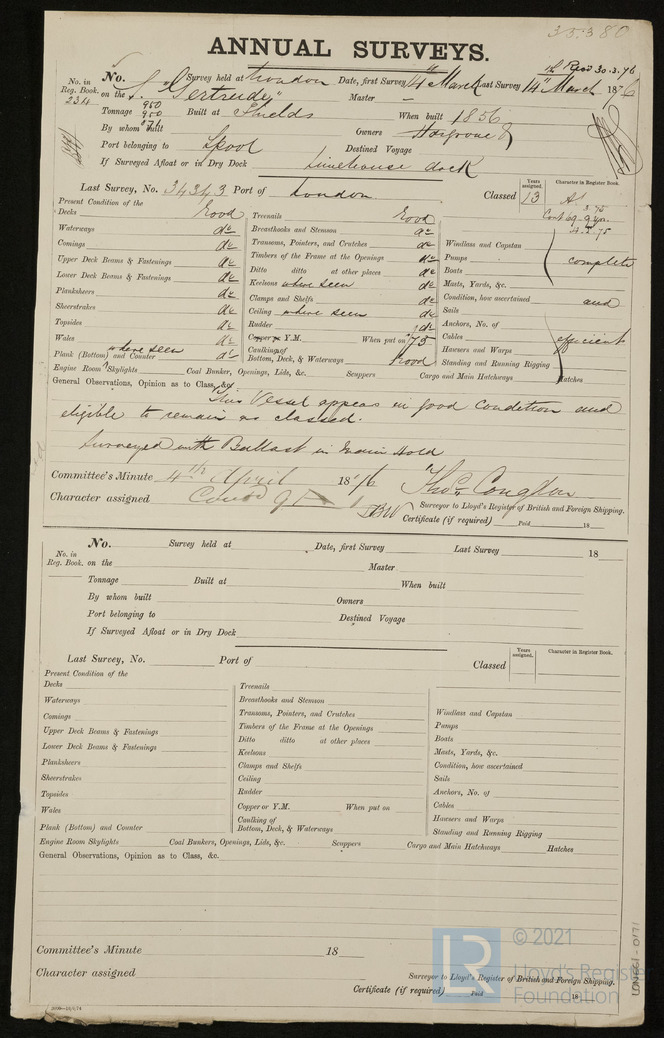 35380
ANNUAL SURVEYS.
Rec'd 30.3.76
No. Survey held at London Date, first Survey 14th March Last Survey 14th March 1876
No. in Reg. Book. 234 on the S. "Gertrude" Master –
Tonnage 960 900 Built at Shields When built 1856
By whom built Owners Hargrove
Port belonging to Lpool Destined Voyage
If Surveyed Afloat or in Dry Dock Limehouse dock
Last Survey, No. 34343 Port of London Classed Years assigned. 13 Character in Register Book. A1
Present Condition of the
Decks Good Treenails Good
Waterways do Breasthooks and Stemson do
Comings do Transoms, Pointers, and Crutches do Windlass and Capstan
Upper Deck Beams & Fastenings do Timbers of the Frame at the Openings do Pumps complete
Lower Deck Beams & Fastenings do Ditto ditto at other places do Boats
Planksheers do Keelsons where seen do Masts, Yards, &c.
Sheerstrakes do Clamps and Shelfs do Condition, how ascertained and
Topsides do Ceiling where seen do Sails
Wales do Rudder do Anchors, No. of
Plank (Bottom) and Counter where seen do Copper or Y.M. When put on 75 Cables efficient
Caulking of Bottom, Deck, & Waterways Good Hawsers and Warps
Standing and Running Rigging
Engine Room Skylights Coal Bunker, Openings, Lids, &c. Scuppers Cargo and Main Hatchways Hatches
General Observations, Opinion as to Class, &c.
This Vessel appears in good condition and
eligible to remain as classed.
Surveyed with Ballast in Main Hold
Committee's Minute 4th April 1876 Thos. Congdon
Character assigned Surveyor to Lloyd's Register of British and Foreign Shipping.
Certificate (if required) Paid 18
No. Survey held at Date, first Survey Last Survey 18
No. in Reg. Book. on the Master
Tonnage Built at When built
By whom built Owners
Port belonging to Destined Voyage
If Surveyed Afloat or in Dry Dock
Last Survey, No. Port of Classed Years assigned. Character in Register Book.
Present Condition of the
Decks Treenails
Waterways Breasthooks and Stemson
Comings Transoms, Pointers, and Crutches Windlass and Capstan
Upper Deck Beams & Fastenings Timbers of the Frame at the Openings Pumps
Lower Deck Beams & Fastenings Ditto ditto at other places Boats
Planksheers Keelsons Masts, Yards, &c.
Sheerstrakes Clamps and Shelfs Condition, how ascertained
Topsides Ceiling Sails
Wales Rudder Anchors, No. of
Plank (Bottom) and Counter Copper or Y.M. When put on Cables
Caulking of Bottom, Deck, & Waterways Hawsers and Warps
Standing and Running Rigging
Engine Room Skylights Coal Bunkers, Openings, Lids, &c. Scuppers Cargo and Main Hatchways Hatches
General Observations, Opinion as to Class, &c.
Committee's Minute 18
Character assigned Surveyor to Lloyd's Register of British and Foreign Shipping.
Certificate (if required) Paid 18
LR © 2021
Lloyd's Register
Foundation